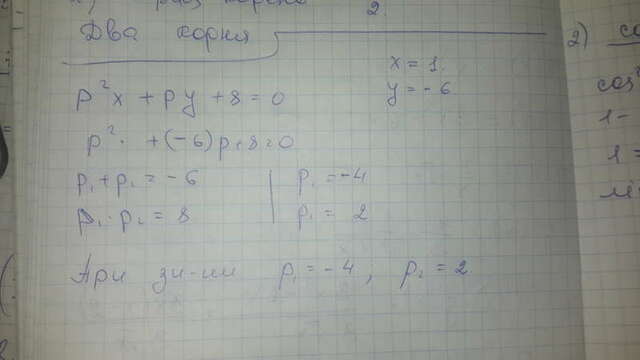 2.
Два корня
x = 1.
y = - 6
p²x + py + 8 = 0
p² · + (-6)p + 8 = 0
p₁ + p₂ = - 6
p₁ · p₂ = 8
p₁ = -4
p₁ = 2
При зн-ии p₁ = - 4 ; p₂ = 2
2)
cos²
1 -
1 =